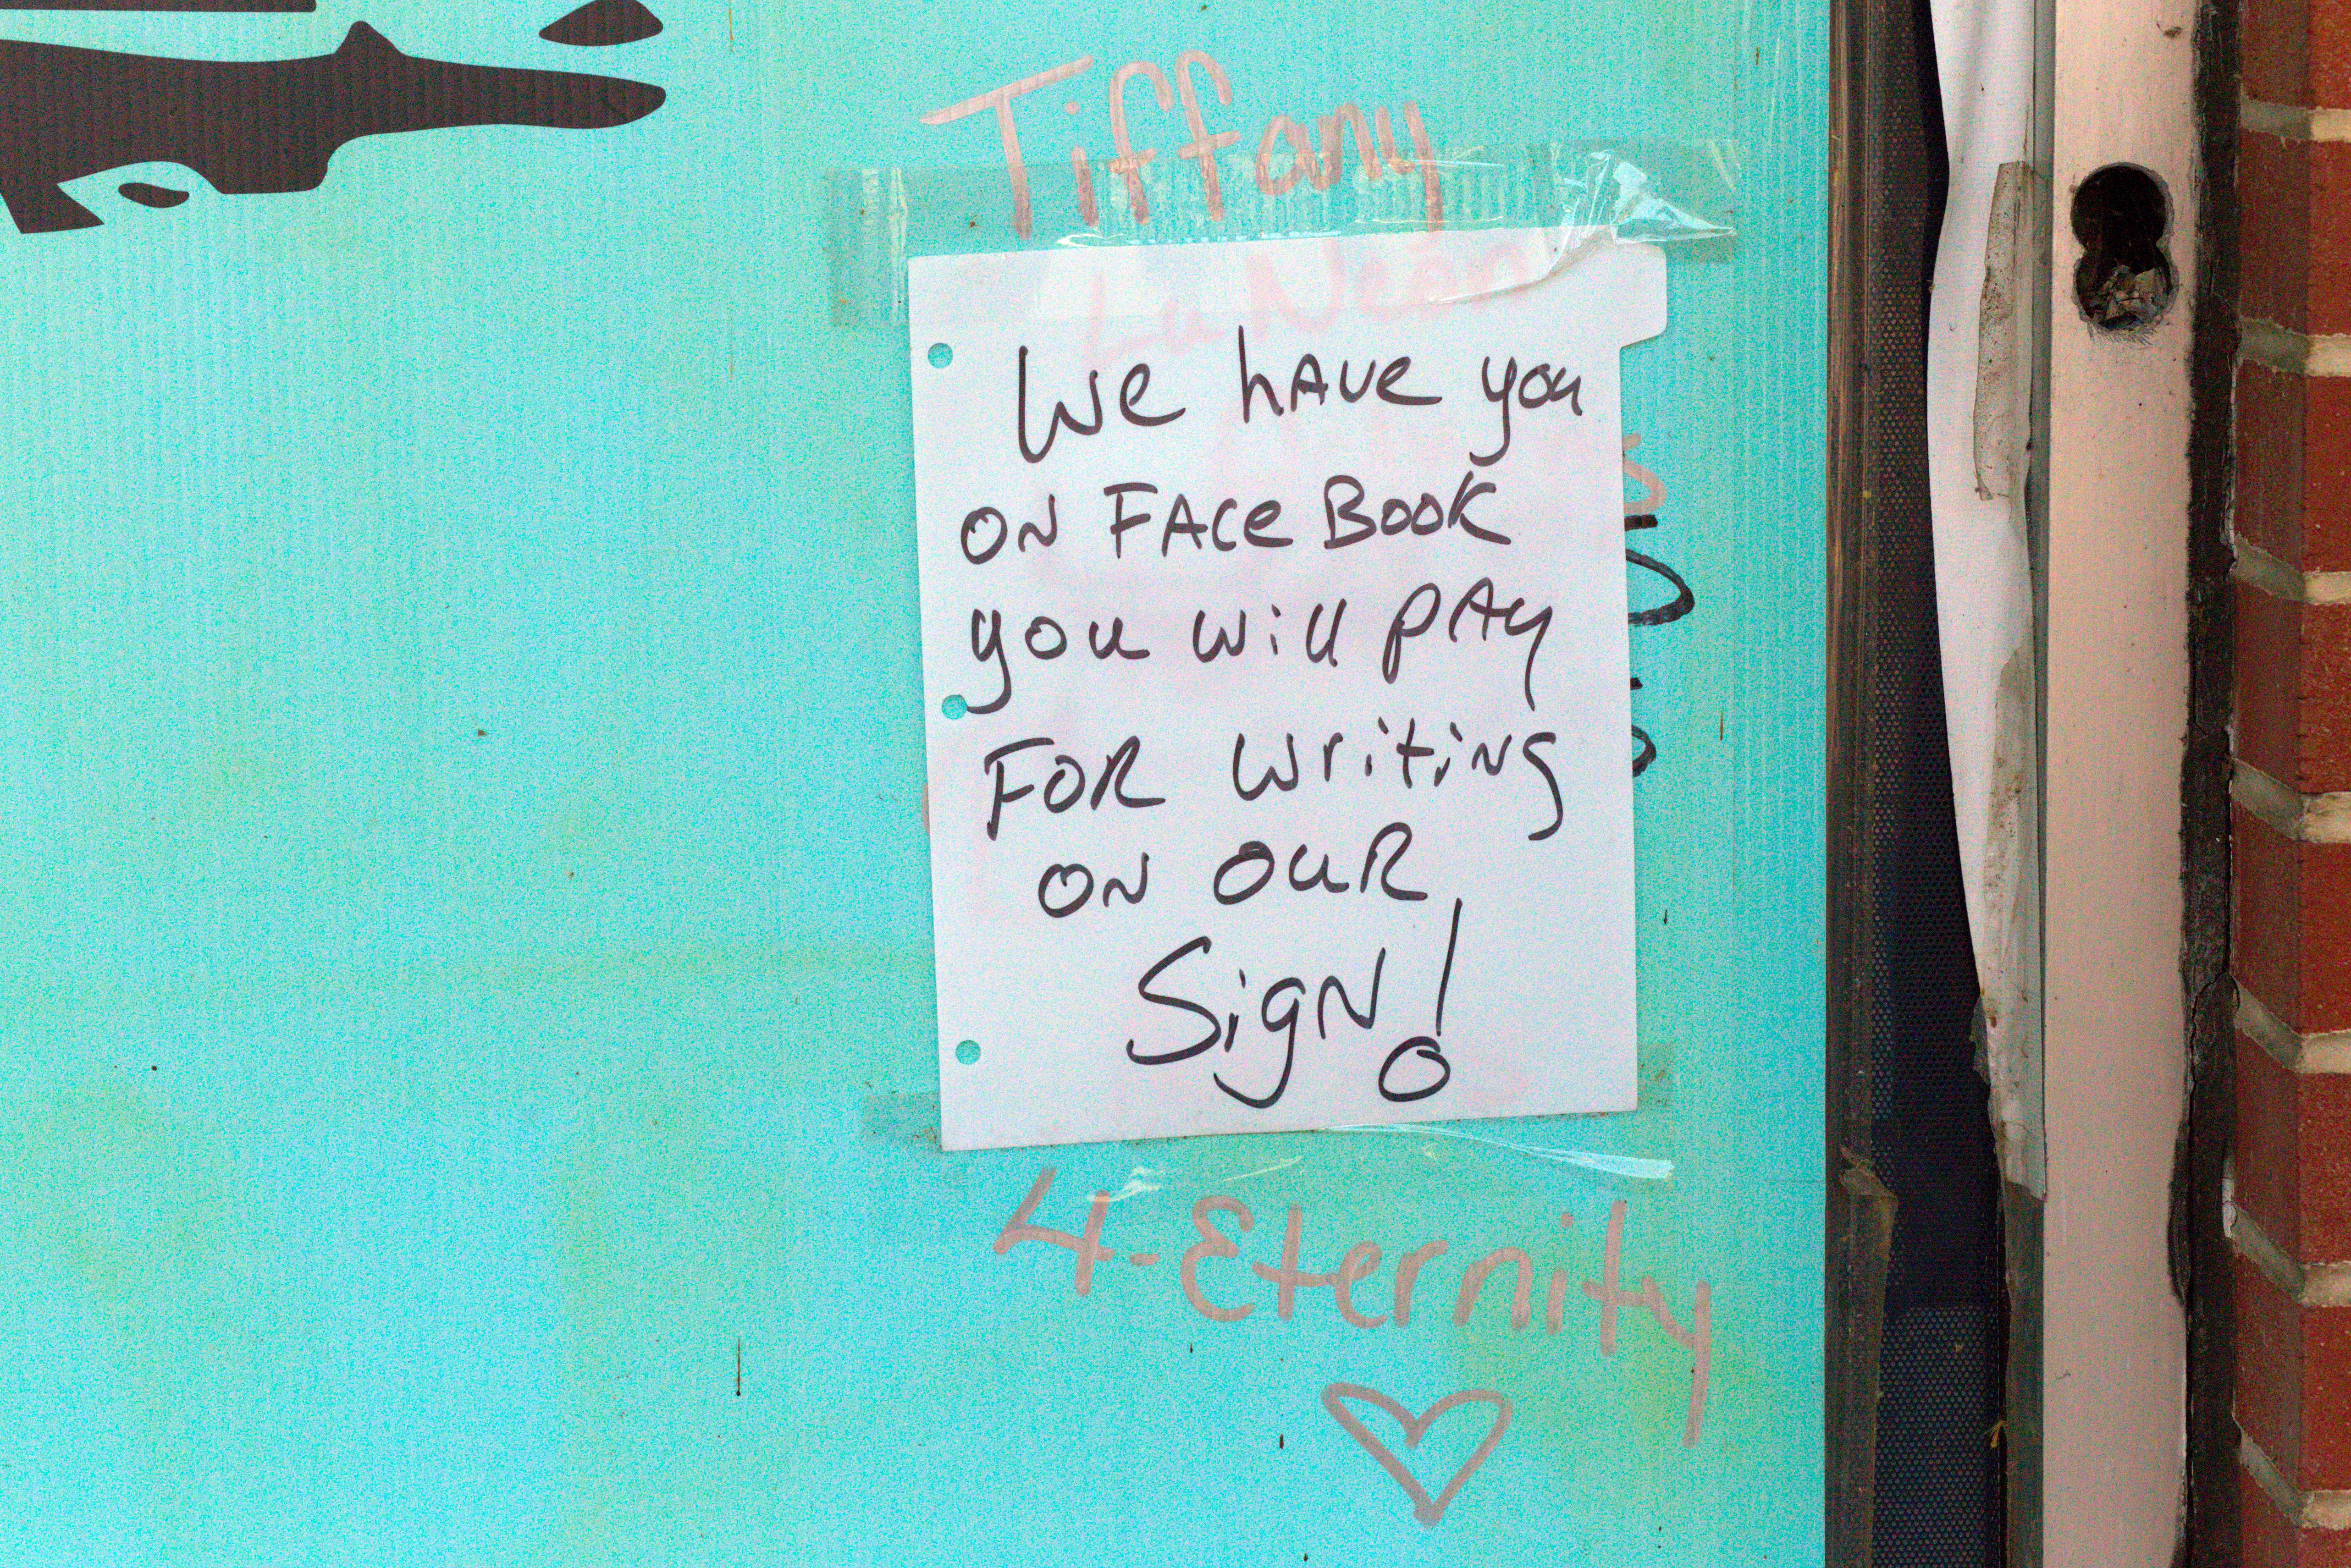 Tiffany
We have you
on Face Book
you will pay
For writing
on our
Sign!
4-Eternity